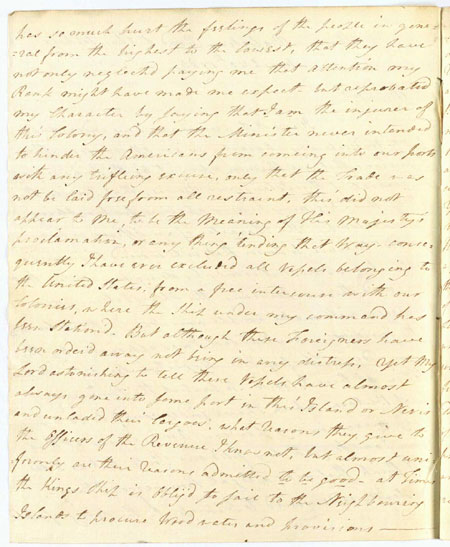 has so much hurt the feelings of the people in gene
=ral from the highest to the lowest, that they have
not only neglected paying me that attention my
Rank might have made me expect but reprobated
my Character by saying that I am the injurer of
this Colony, and that the Minister never intended
to hinder the Americans from comeing into our ports
with any trifling excuse, only that the Trade was
not be laid free from all restraint, this did not
appear to me, to be the Meaning of His Majesty's
proclamation, or any thing tending that Way. conse-
quently I have ever excluded all Vessels belonging to
the United States, from a free intercourse with our
Colonies, where the Ship under my command has
been Station'd. But although these Foreigners have
been order'd away not being in any distress, yet My
Lord astonishing to tell these Vessels have almost
always gone into some port in this Island or Nevis
and unladed their Cargoes, what reasons they give to
the Officers of the Revenue I know not, but almost uni
formly are their reasons admitted to be good - at Times
the Kings Ship is oblig'd to sail to the Neighbouring
Islands to procure Wood water and provisions